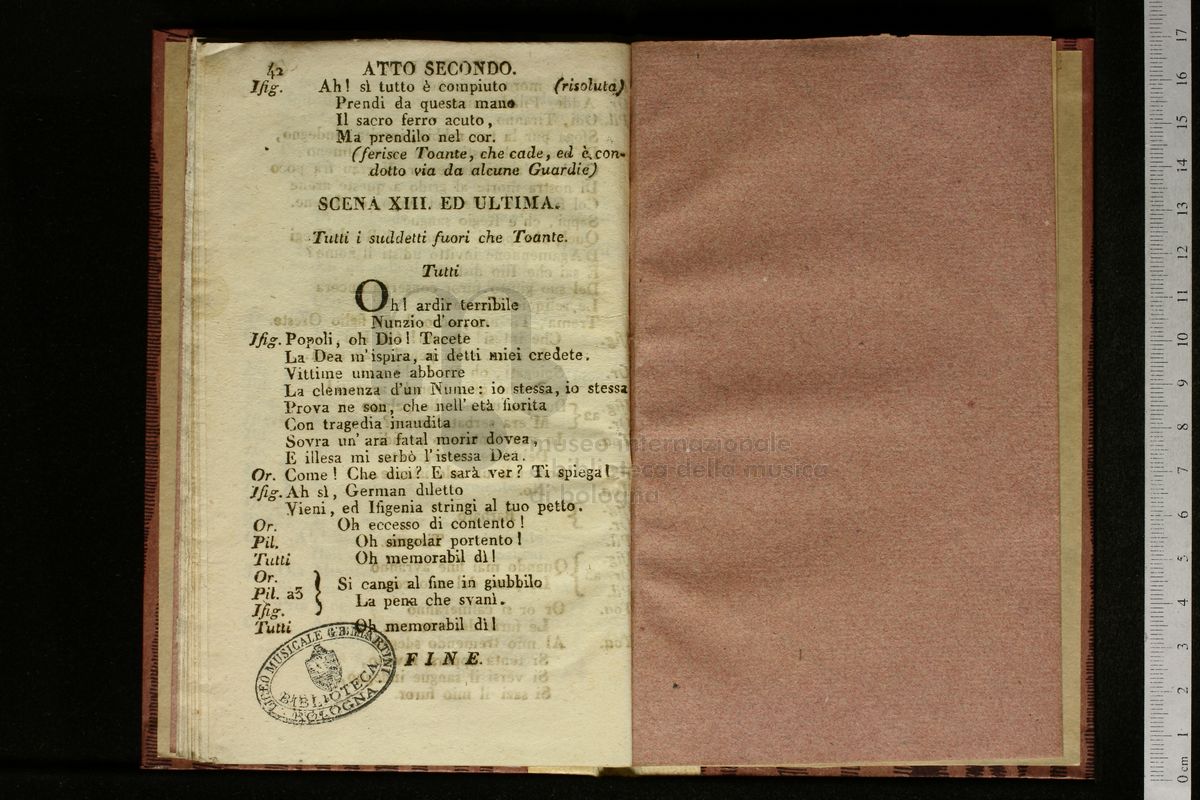 42 ATTO SECONDO.
Ifig. Ah! sì tutto è compiuto (risoluta)
Prendi da questa mano
Il sacro ferro acuto,
Ma prendilo nel cor.
(ferisce Toante, che cade, ed è con-
dotto via da alcune Guardie)
SCENA XIII. ED ULTIMA.
Tutti i suddetti fuori che Toante.
Tutti
Oh! ardir terribile
Nunzio d'orror.
Ifig. Popoli, oh Dio! Tacete
La Dea m'ispira, ai detti miei credete.
Vittime umane abborre
La clemenza d'un Nume: io stessa, io stessa
Prova ne son, che nell' età fiorita
Con tragedia inaudita
Sovra un' ara fatal morir dovea,
E illesa mi serbò l'istessa Dea.
Or. Come! Che dici? E sarà ver? Ti spiega!
Ifig. Ah sì, German diletto
Vieni, ed Ifigenia stringi al tuo petto.
Or. Oh eccesso di contento!
Pil. Oh singolar portento!
Tutti Oh memorabil dì!
Or.
Pil. a3 } Si cangi al fine in giubbilo
Ifig. La pena che svanì.
Tutti Oh memorabil dì!
FINE.
LICEO MUSICALE G.B. MARTINI
BIBLIOTECA
BOLOGNA
museo internazionale
e biblioteca della musica
di bologna
0 cm 1 2 3 4 5 6 7 8 9 10 11 12 13 14 15 16 17